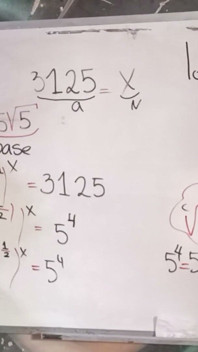 3125 = X
a N
5√5
base
)^x = 3125
)^x = 5^4
½)^x = 5^4
5^4=5